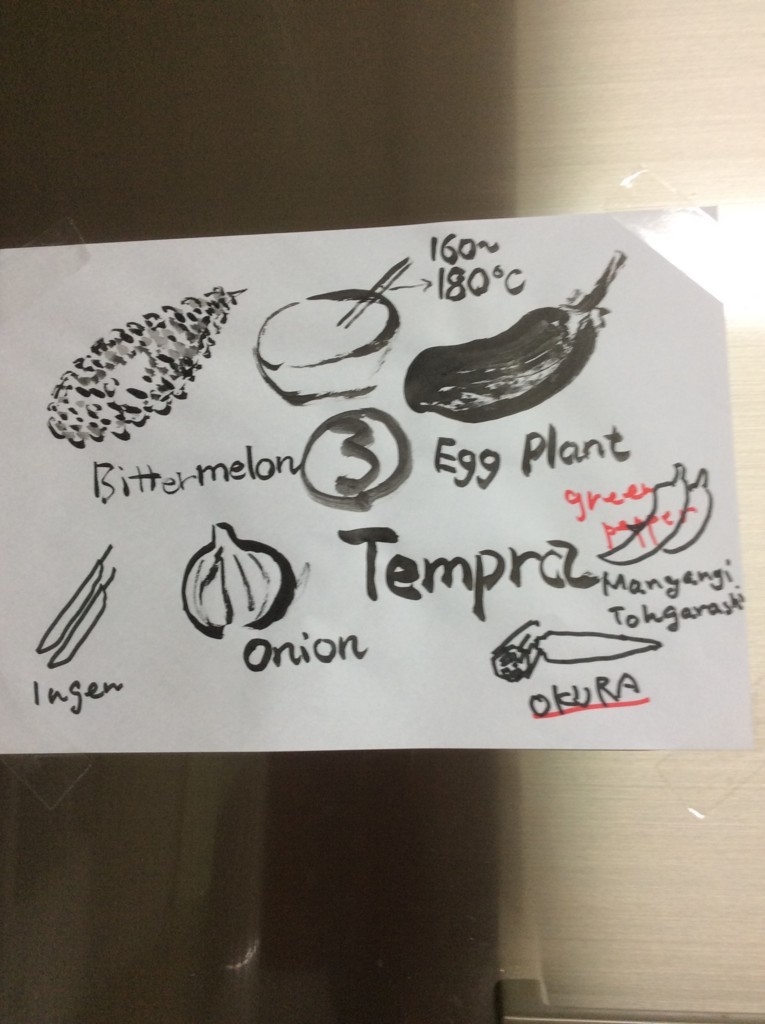 160~
180°C
Bittermelon
3
Egg Plant
green
pepper
Tempra
Manyangi
Tohgarashi
Onion
Ingen
OKURA